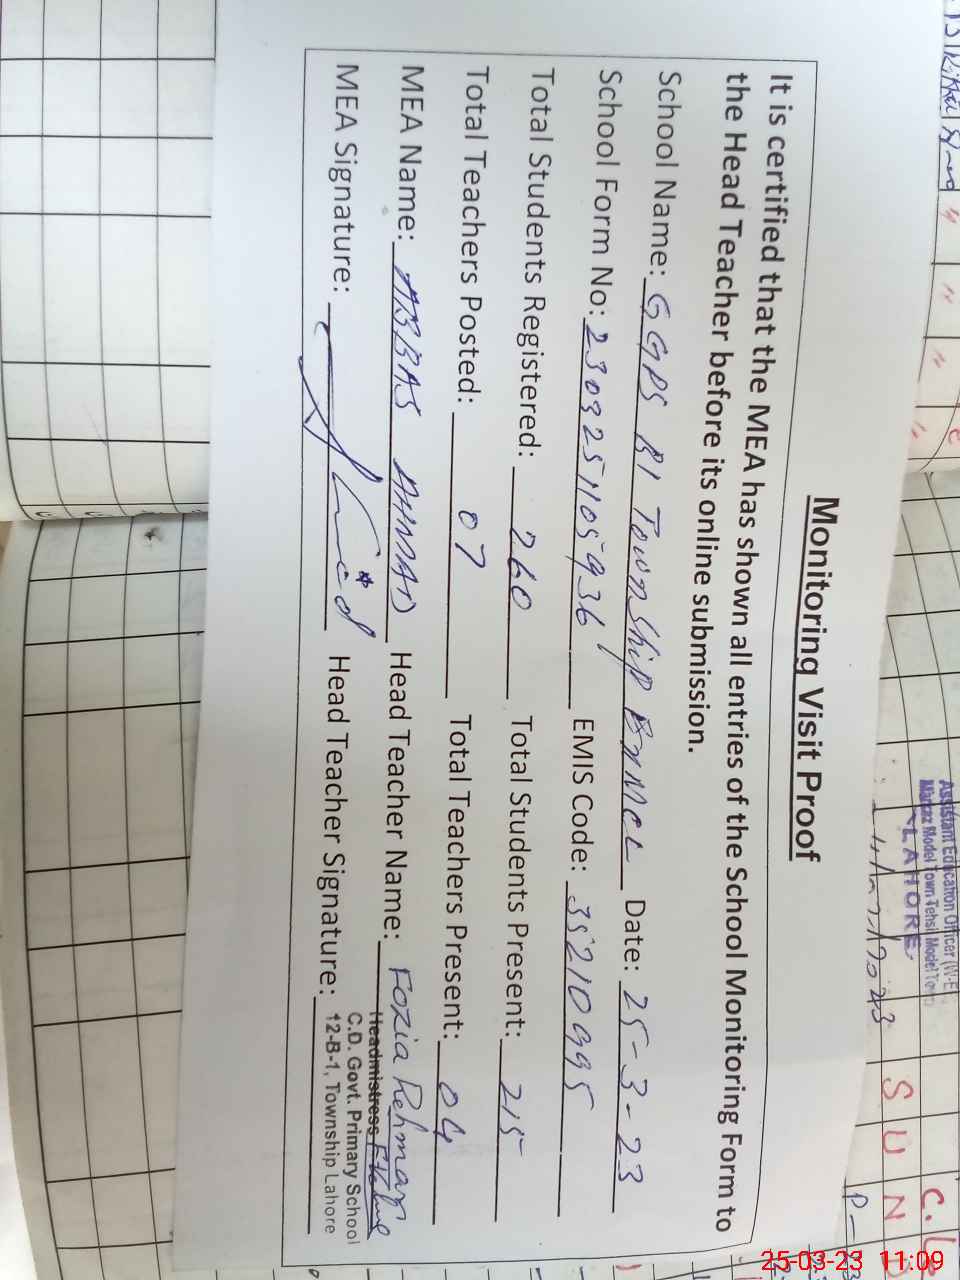 Monitoring Visit Proof
It is certified that the MEA has shown all entries of the School Monitoring Form to
the Head Teacher before its online submission.
School Name: GGPS B1 Township Date: 25-3-23
School Form No: 2303251105936 EMIS Code: 35210995
Total Students Registered: 260 Total Students Present: 215
Total Teachers Posted: 07 Total Teachers Present: 04
MEA Name: ABBAS AHMAD Head Teacher Name: Fozia Rehman
MEA Signature: Head Teacher Signature:
Headmistress
C.D. Govt. Primary School
12-B-1, Township Lahore
Assistant Education Officer (W-E
Markaz Model Town Tehsil Model Town
LAHORE
S U N
25-03-23 11:09